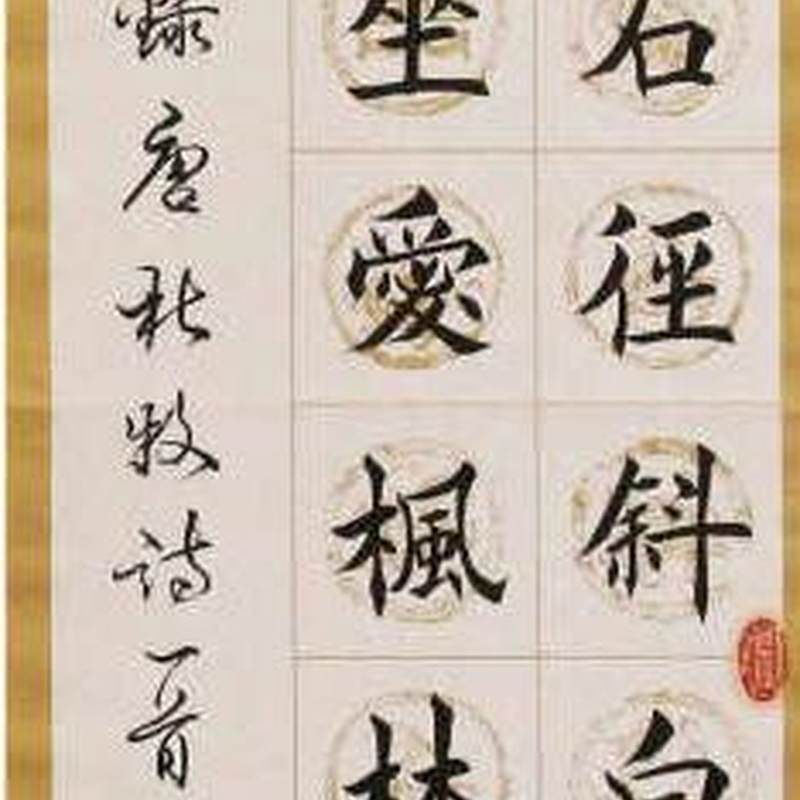 石徑斜白
坐愛楓林
錄唐杜牧詩一首